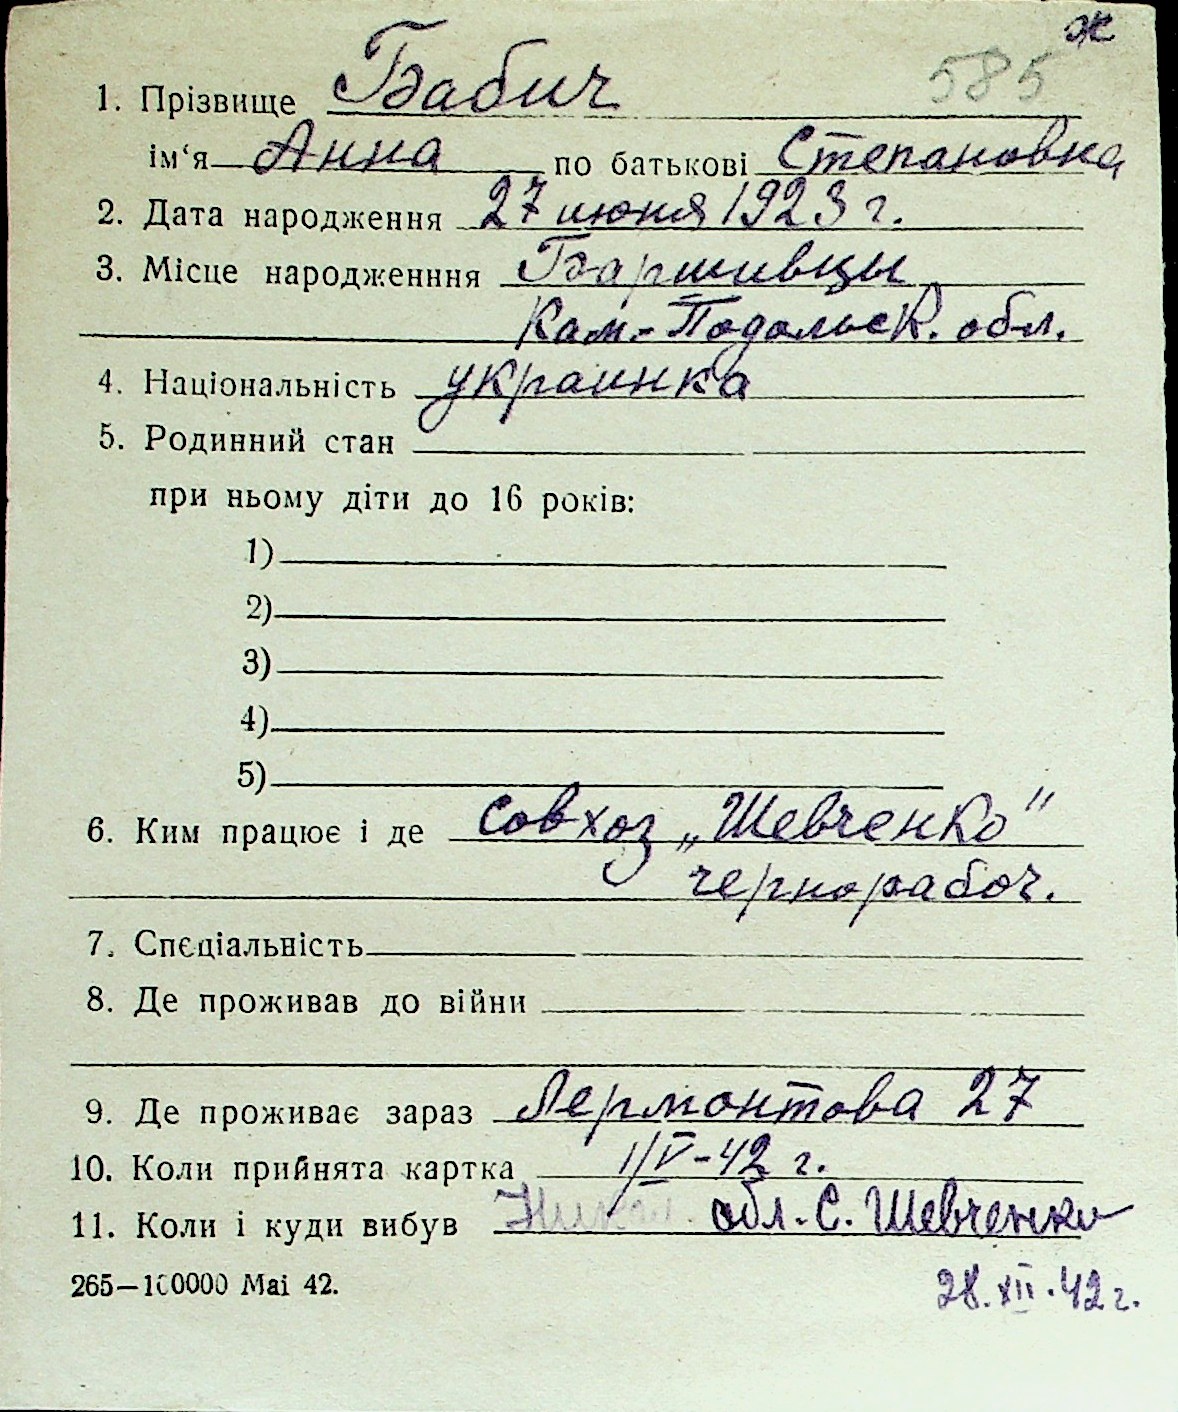 ж
585
1. Прізвище Бабич
ім‘я Анна по батькові Степановна
2. Дата народження 27 июня 1923 г.
3. Місце народженння Баршивцы
Кам.-Подольск. обл.
4. Національність украинка
5. Родинний стан
при ньому діти до 16 років:
1)
2)
3)
4)
5)
6. Ким працює і де совхоз „Шевченко"
чернорабоч.
7. Спєціальність
8. Де проживав до війни
9. Де проживає зараз Лермонтова 27
10. Коли прийнята картка 1/V-42 г.
11. Коли і куди вибув обл. С. Шевченко
265—100000 Mai 42.
28.XII.42 г.